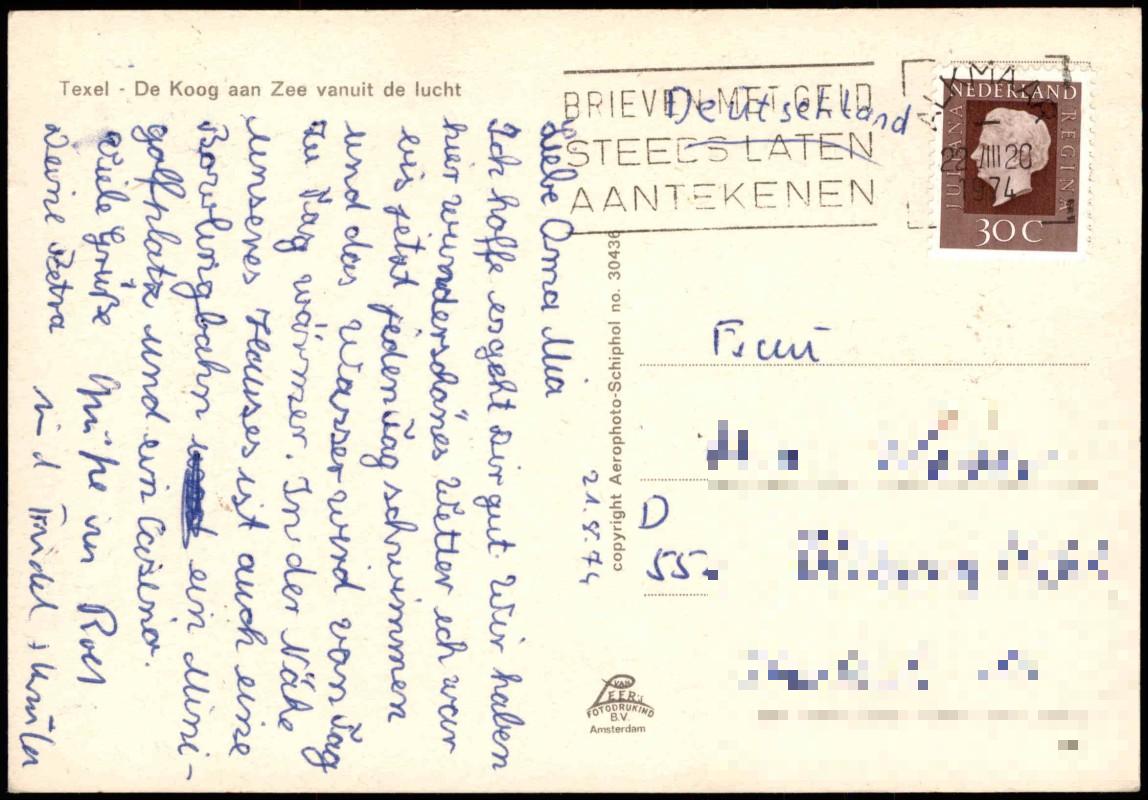 Texel - De Koog aan Zee vanuit de lucht
Liebe Oma Mia
Ich hoffe es geht Dir gut. Wir haben
hier wundersdänes Wetter ich war
bis jetzt jeden Tag schwimmen
und das Wasser wird von Tag
zu Tag wärmer. In der Nähe
unseres Hauses ist auch eine
Bowlingbahn ein Mini-
golfplatz und ein Casino.
Viele Grüße
Deine Petra
copyright Aerophoto-Schiphol no. 30436
21.8.74
BRIEVEN MET GELD
STEEDS LATEN
AANTEKENEN
Deutschland
ALKMAAR
22 VIII 20
1974
NEDERLAND
JULIANA REGINA
30 C
Frau
D
55
VAN
LEER's
FOTODRUKIND
B.V.
Amsterdam